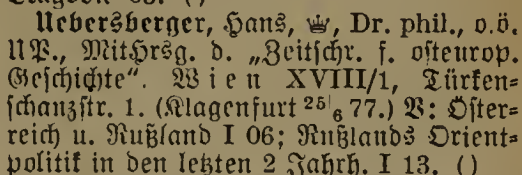 Uebersberger, Hans, Dr. phil., o.ö.
UP., Mithrsg. d. „Zeitschr. f. osteurop.
Geschichte“. Wien XVIII/1, Türken=
schanzstr. 1. (Klagenfurt 25/6 77.) V: Öster=
reich u. Rußland I 06; Rußlands Orient=
politik in den letzten 2 Jahrh. I 13. ()